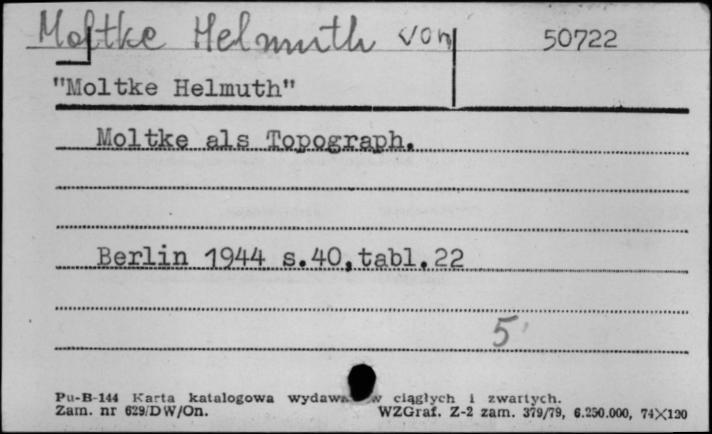 Moltke Helmuth von 50722
"Moltke Helmuth"
Moltke als Topograph.
Berlin 1944 s.40,tabl.22
5
Pu-B-144 Karta katalogowa wydaw w ciągłych i zwartych.
Zam. nr 629/DW/On. WZGraf. Z-2 zam. 379/79, 6.250.000, 74×120